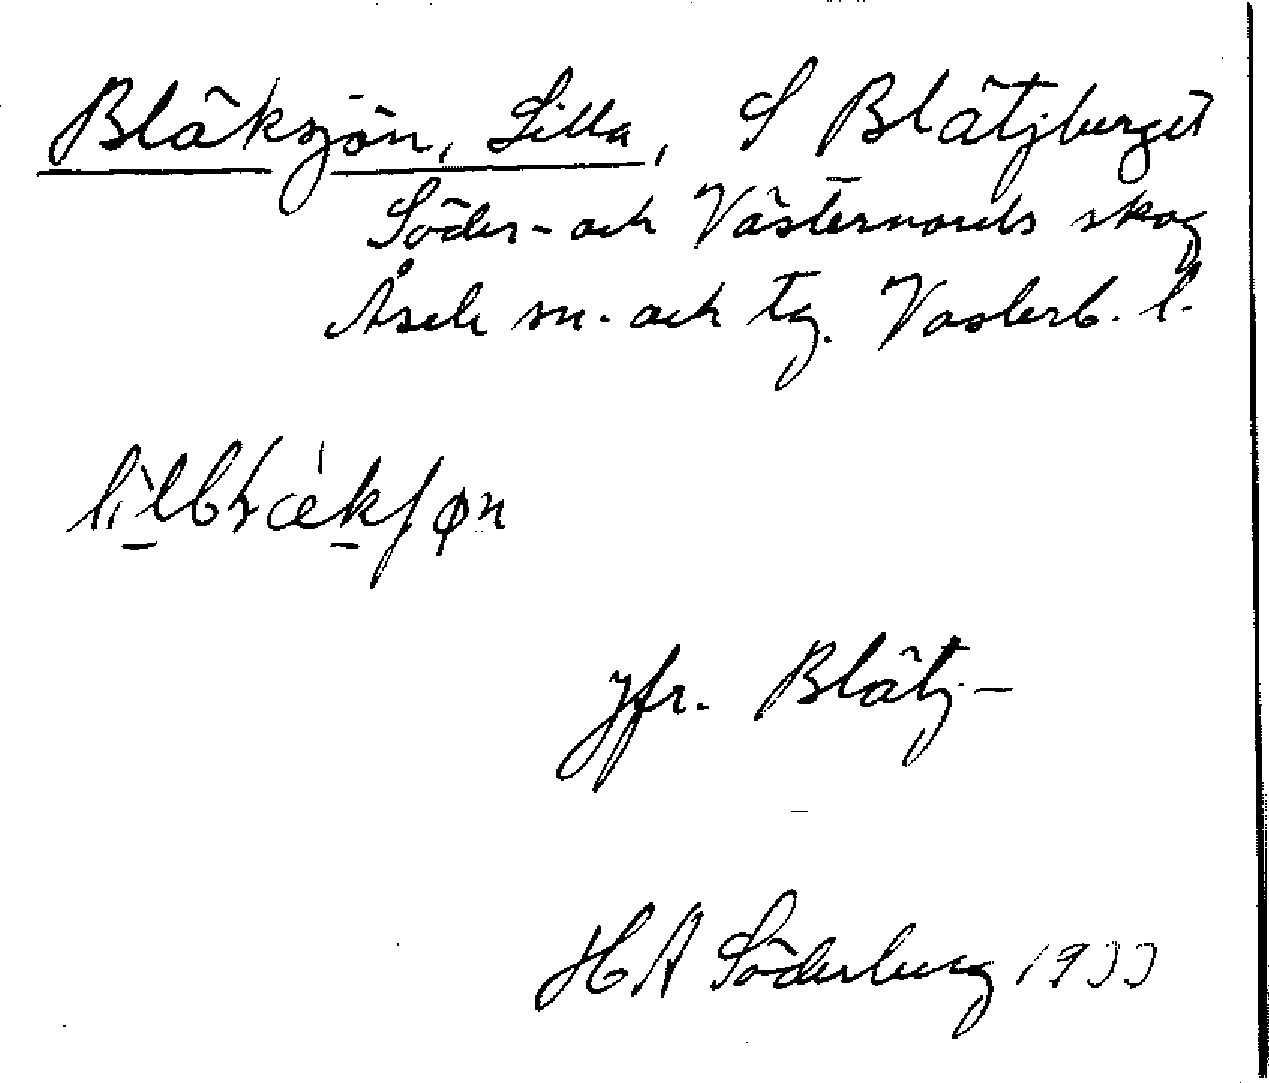 Bläksjön, Lilla, S Blätjberget
Söder- och Västernoruts skog
Åsele sn. och tg. Västerb. l.
jfr. Blätj-
H A Söderberg 1933